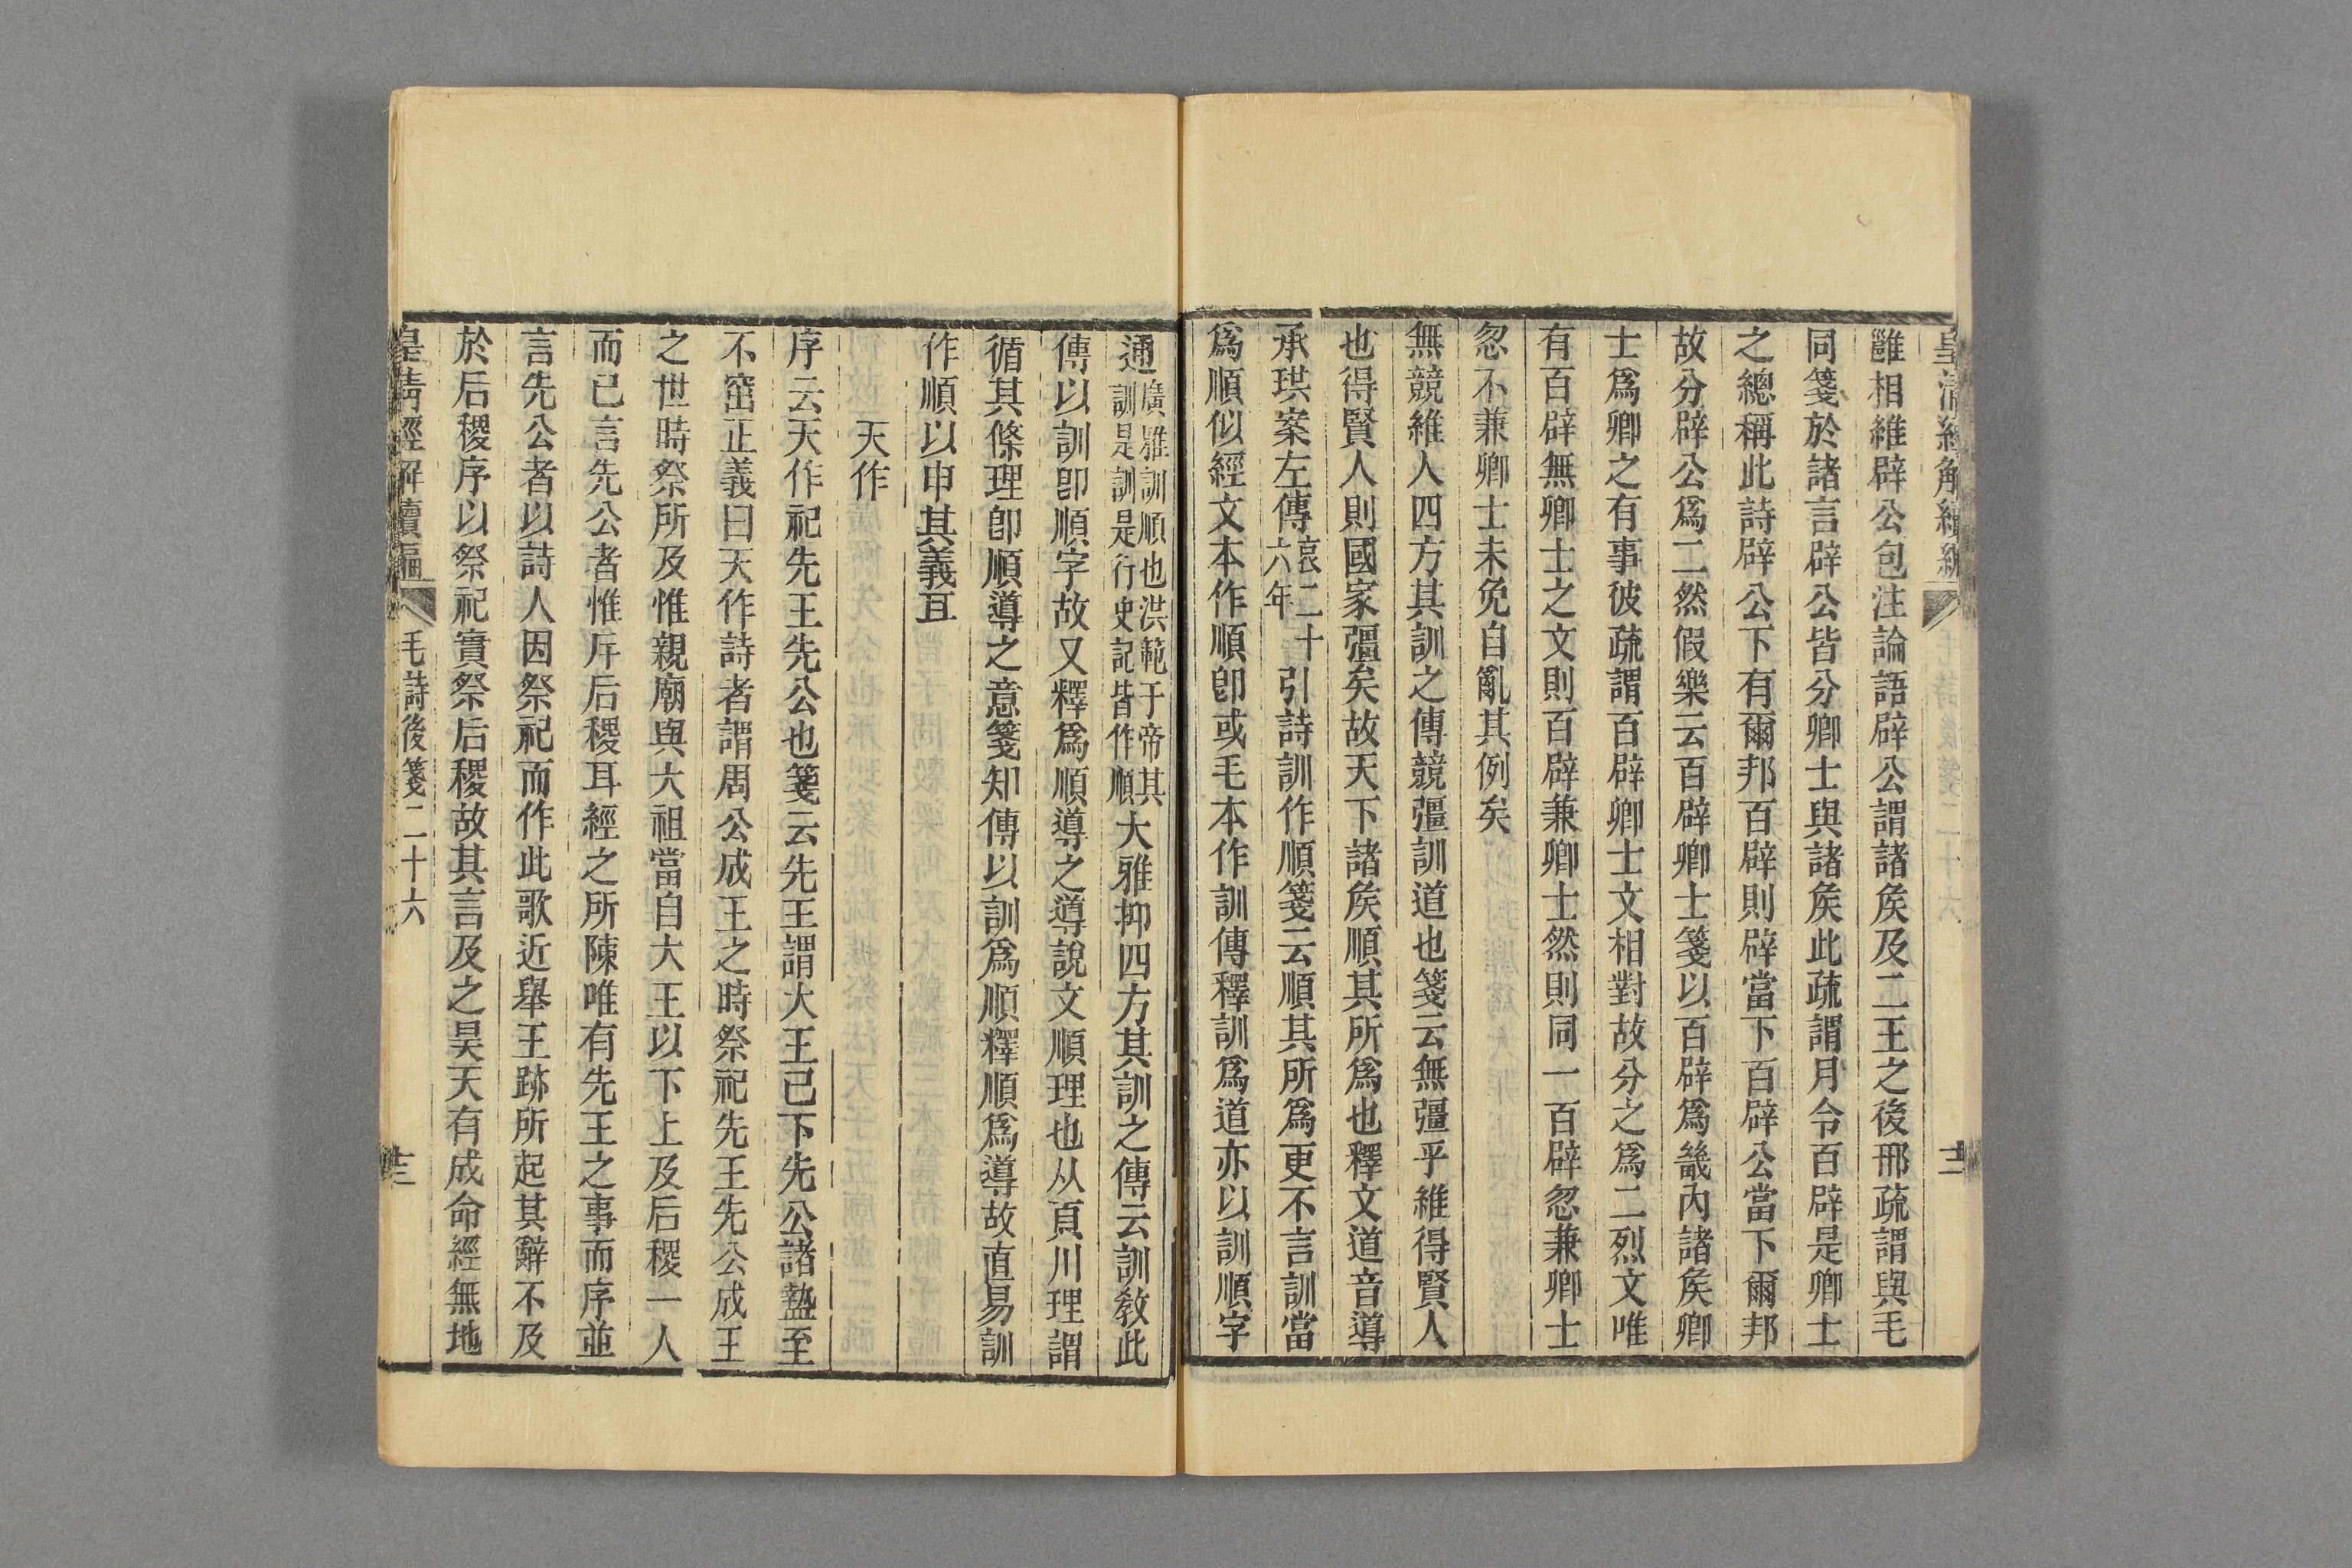 皇清經解續編
十二
雝相維辟公包注論語辟公謂諸矦及二王之後邢疏謂與毛
同箋於諸言辟公皆分卿士與諸矦此疏謂月令百辟是卿士
之總稱此詩辟公下有爾邦百辟則辟當下百辟公當下爾邦
故分辟公爲二然假樂云百辟卿士箋以百辟爲畿內諸矦卿
士爲卿之有事彼疏謂百辟卿士文相對故分之爲二烈文唯
有百辟無卿士之文則百辟兼卿士然則同一百辟忽兼卿士
忽不兼卿士未免自亂其例矣
無競維人四方其訓之傳競彊訓道也箋云無彊乎維得賢人
也得賢人則國家彊矣故天下諸矦順其所爲也釋文道音導
承珙案左傳哀二十六年引詩訓作順箋云順其所爲更不言訓當
爲順似經文本作順卽或毛本作訓傳釋訓爲道亦以訓順字
通廣雅訓順也洪範于帝其訓是訓是行史記皆作順大雅抑四方其訓之傳云訓敎此
傳以訓卽順字故又釋爲順導之導說文順理也从頁川理謂
循其條理卽順導之意箋知傳以訓爲順釋順爲導故直易訓
作順以申其義耳
天作
序云天作祀先王先公也箋云先王謂大王已下先公諸盩至
不窋正義曰天作詩者謂周公成王之時祭祀先王先公成王
之世時祭所及惟親廟與大祖當自大王以下上及后稷一人
而已言先公者惟斥后稷耳經之所陳唯有先王之事而序並
言先公者以詩人因祭祀而作此歌近舉王跡所起其辭不及
於后稷序以祭祀實祭后稷故其言及之昊天有成命經無地
皇清經解續編
毛詩後箋二十六
十三